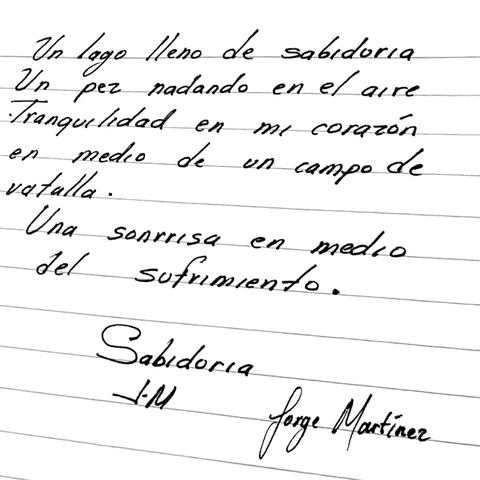 Un lago lleno de sabidoria
Un pez nadando en el aire
Tranquilidad en mi corazón
en medio de un campo de
vatalla.
Una sonrrisa en medio
del sufrimiento.
Sabidoria
J.M
Jorge Martínez